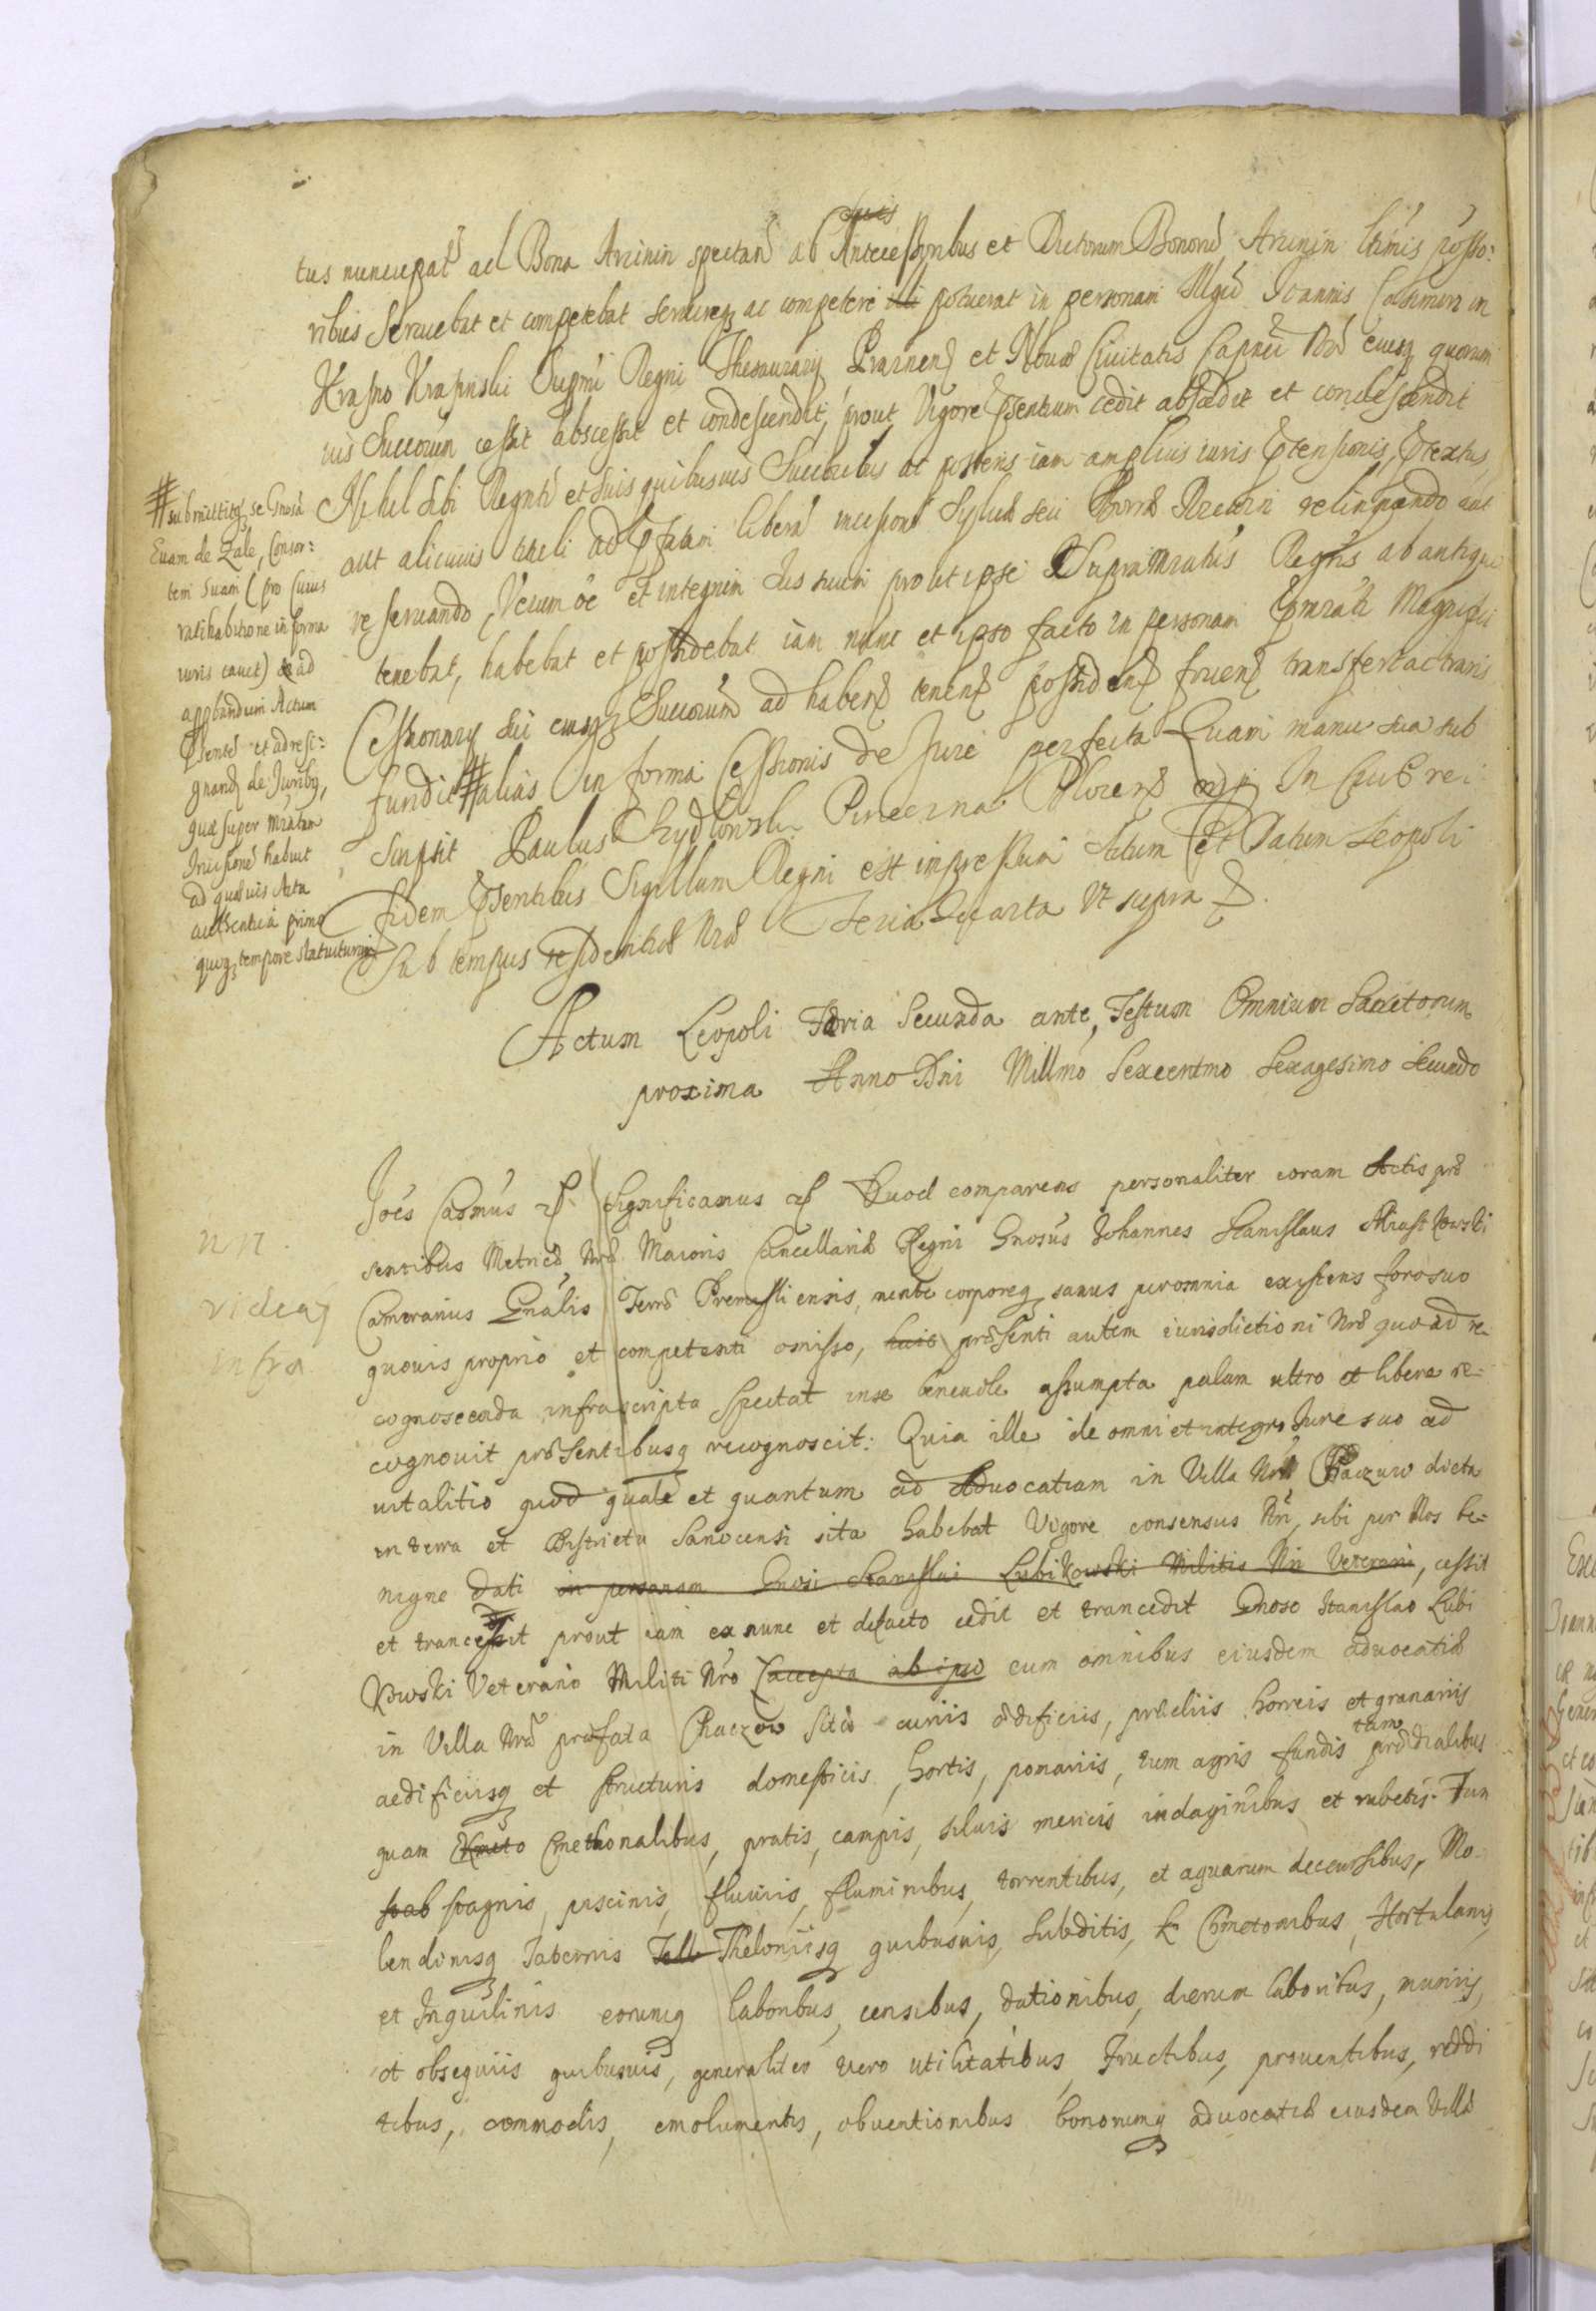 tus nuncupat ad Bona Arcinin spectan ab Antecessoribus et Dictorum Bonorum Arcinin ltimis posso:
ribus Seruiebat et competebat seruireq ac competere potuerat in personam Mgci Joannis Casimiri in
Krasno Krasinski Supmi Regni Thesaurarij et Nouae Ciuitatis Capnei eiusq quorum
uis Succorum cessit abscessit et condescendit, prout Vigore psentium cedit abscedit et condescendit
Nihil sibi et suis quibusuis Succoribus ac posteris iam amplius iuris ptensionis, ptextus,
aut alicuius tituli ad pfatam Syluae seu relinquendo aut
reseruando, Verum oe et integrum Jus suum prout ipse ab antiquo
tenebat, habebat et possidebat iam nunc et ipso facto in personam Magnifici
Cessionarij sui eiusq Succorum ad haben tenen possiden fruen transfert ac trans
fundit # alias in forma Cessionis de Jure perfecta Quam manu sua sub
scripsit Paulus Pincerna In Cuius rei
fidem psentibus Sigillum Regni est impressum Actum Et Datum Leopoli
Sub tempus residentiae Nrae Feria Quarta Vt supra
# submittitq se Gnosa
Euam de Zale, Consor:
tem Suam (pro cuius
ratihabitione in forma
iuris cauet) ad
appbandum Actum
psente et ad resi:
gnand de Juribq,
quae super
habuit
ad quaeuis Acta
authentica primo
quoq tempore statuiturum
Actum Leopoli Feria Secunda ante, Festum Omnium Sanctorum
proxima Anno Dni Millmo Sexcentmo Sexagesimo Secundo
nn.
videaq
infra
Joes Casmus Significamus Quod comparens personaliter coram Actis prae
sentibus Metrices Nrae Maioris Cancellariae Regni Gnosus Johannes Stanislaus
Camerarius Gnalis Terrae Premisliensis, mente corporeq sanus per omnia existens foro suo
quouis proprio et competenti omisso, huic praesenti autem iurisdictioni Nrae quo ad re-
cognoscenda infrascripta spectat in se beneuole assumpta palam ultro et libere re=
cognouit praesentibusq recognoscit: Quia ille de omni et integro Jure suo ad
uitalitio quod quale et quantum ad Aduocatiam in Villa Nra Raczow dicta
in terra et Districtu Sanocensi sita habebat Vigore consensus Nri, sibi per Nos be=
nigne dati in personam Gnosi Stanislai Lubikowski Militis Nri Veterani, cessit
et trancessit prout iam ex nunc et defacto cedit et trancedit Gnoso Stanislao Lubi
Kowski Veterano Militi Nro accepta ab ipso cum omnibus eiusdem aduocatiae
in Villa Nra praefata Raczow sitae curiis aedificiis, praediis horreis et granariis
aedificiisq et structuris domesticis, hortis, pomariis, tum agris fundis tam praedialibus
quam Kmeto Cmethonalibus, pratis, campis, siluis mericis indaginibus et rubetis. Tum
stab stagnis, piscinis, fluuiis, fluminibus, torrentibus, et aquarum decursibus, Mo-
lendinisq Tabernis Tell Theloniisq quibusuis, Subditis, Cmetonibus, Hortulanis,
et Inquilinis eorumq laboribus, censibus, dationibus, dierum laboribus, muniis,
et obsequiis quibusuis, generaliter vero utilitatibus, Fructibus, prouentibus, reddi
tibus, commodis, emolumentis, obuentionibus bonorumq aduocatiae eiusdem Villae